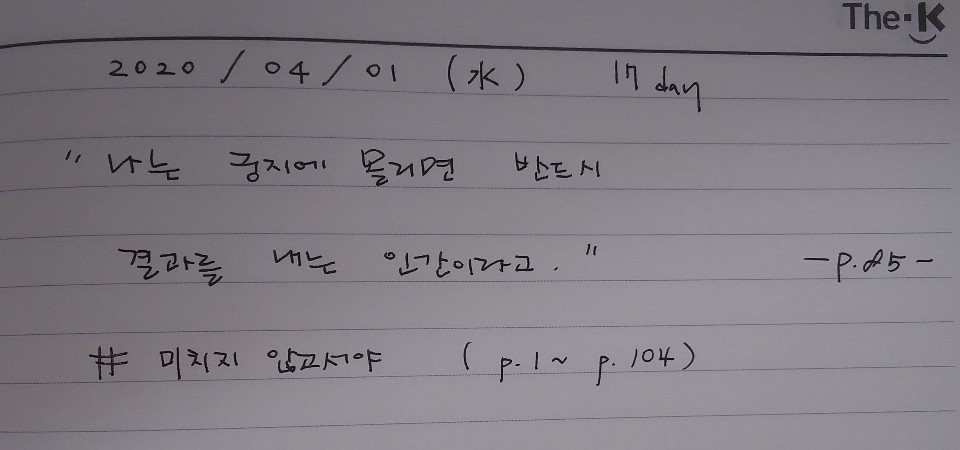 The·K
2020 / 04 / 01 (水) 17 day
" 나는 궁지에 몰리면 반드시
결과를 내는 인간이라고. " -p.85-
# 미치지 않고서야 (p.1 ~ p.104)